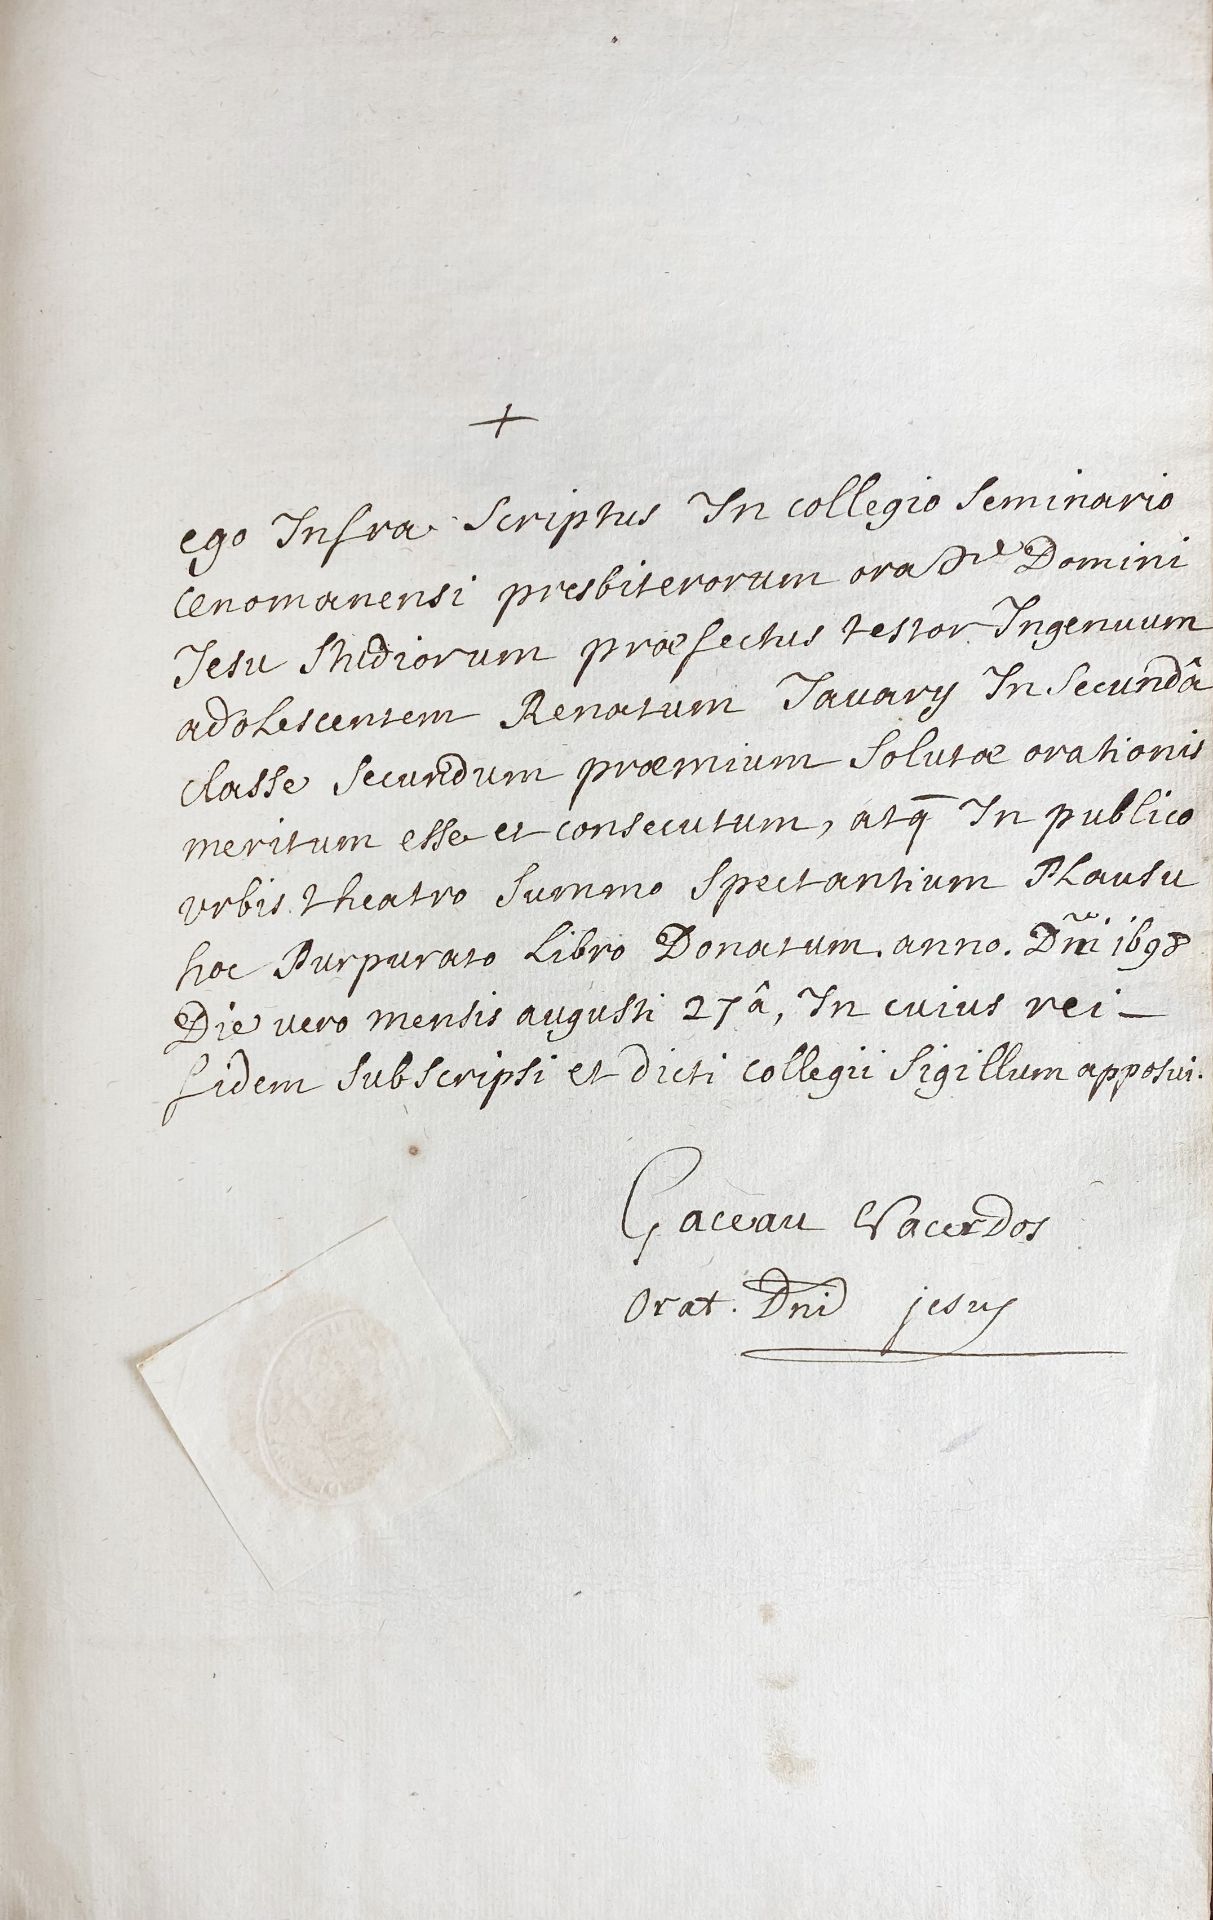 +
ego Infra Scriptus In collegio Seminario
Cenomanensi presbiterorum Domini
Jesu Studiorum præfectus testor Ingenuum
adolescentem Renatum Tavary In Secundâ
classe Secundum præmium Solutæ orationis
meritum esse et consecutum, atq̄ In publico
vrbis theatro Summo Spectantium Plausu
hoc Purpurato Libro Donatum. anno. Dnī 1698
Die vero mensis augusti 27â, In cuius rei –
fidem SubScripsi et dicti collegii Sigillum apposui.
Gaceau Sacerdos
Orat. Dni jesu